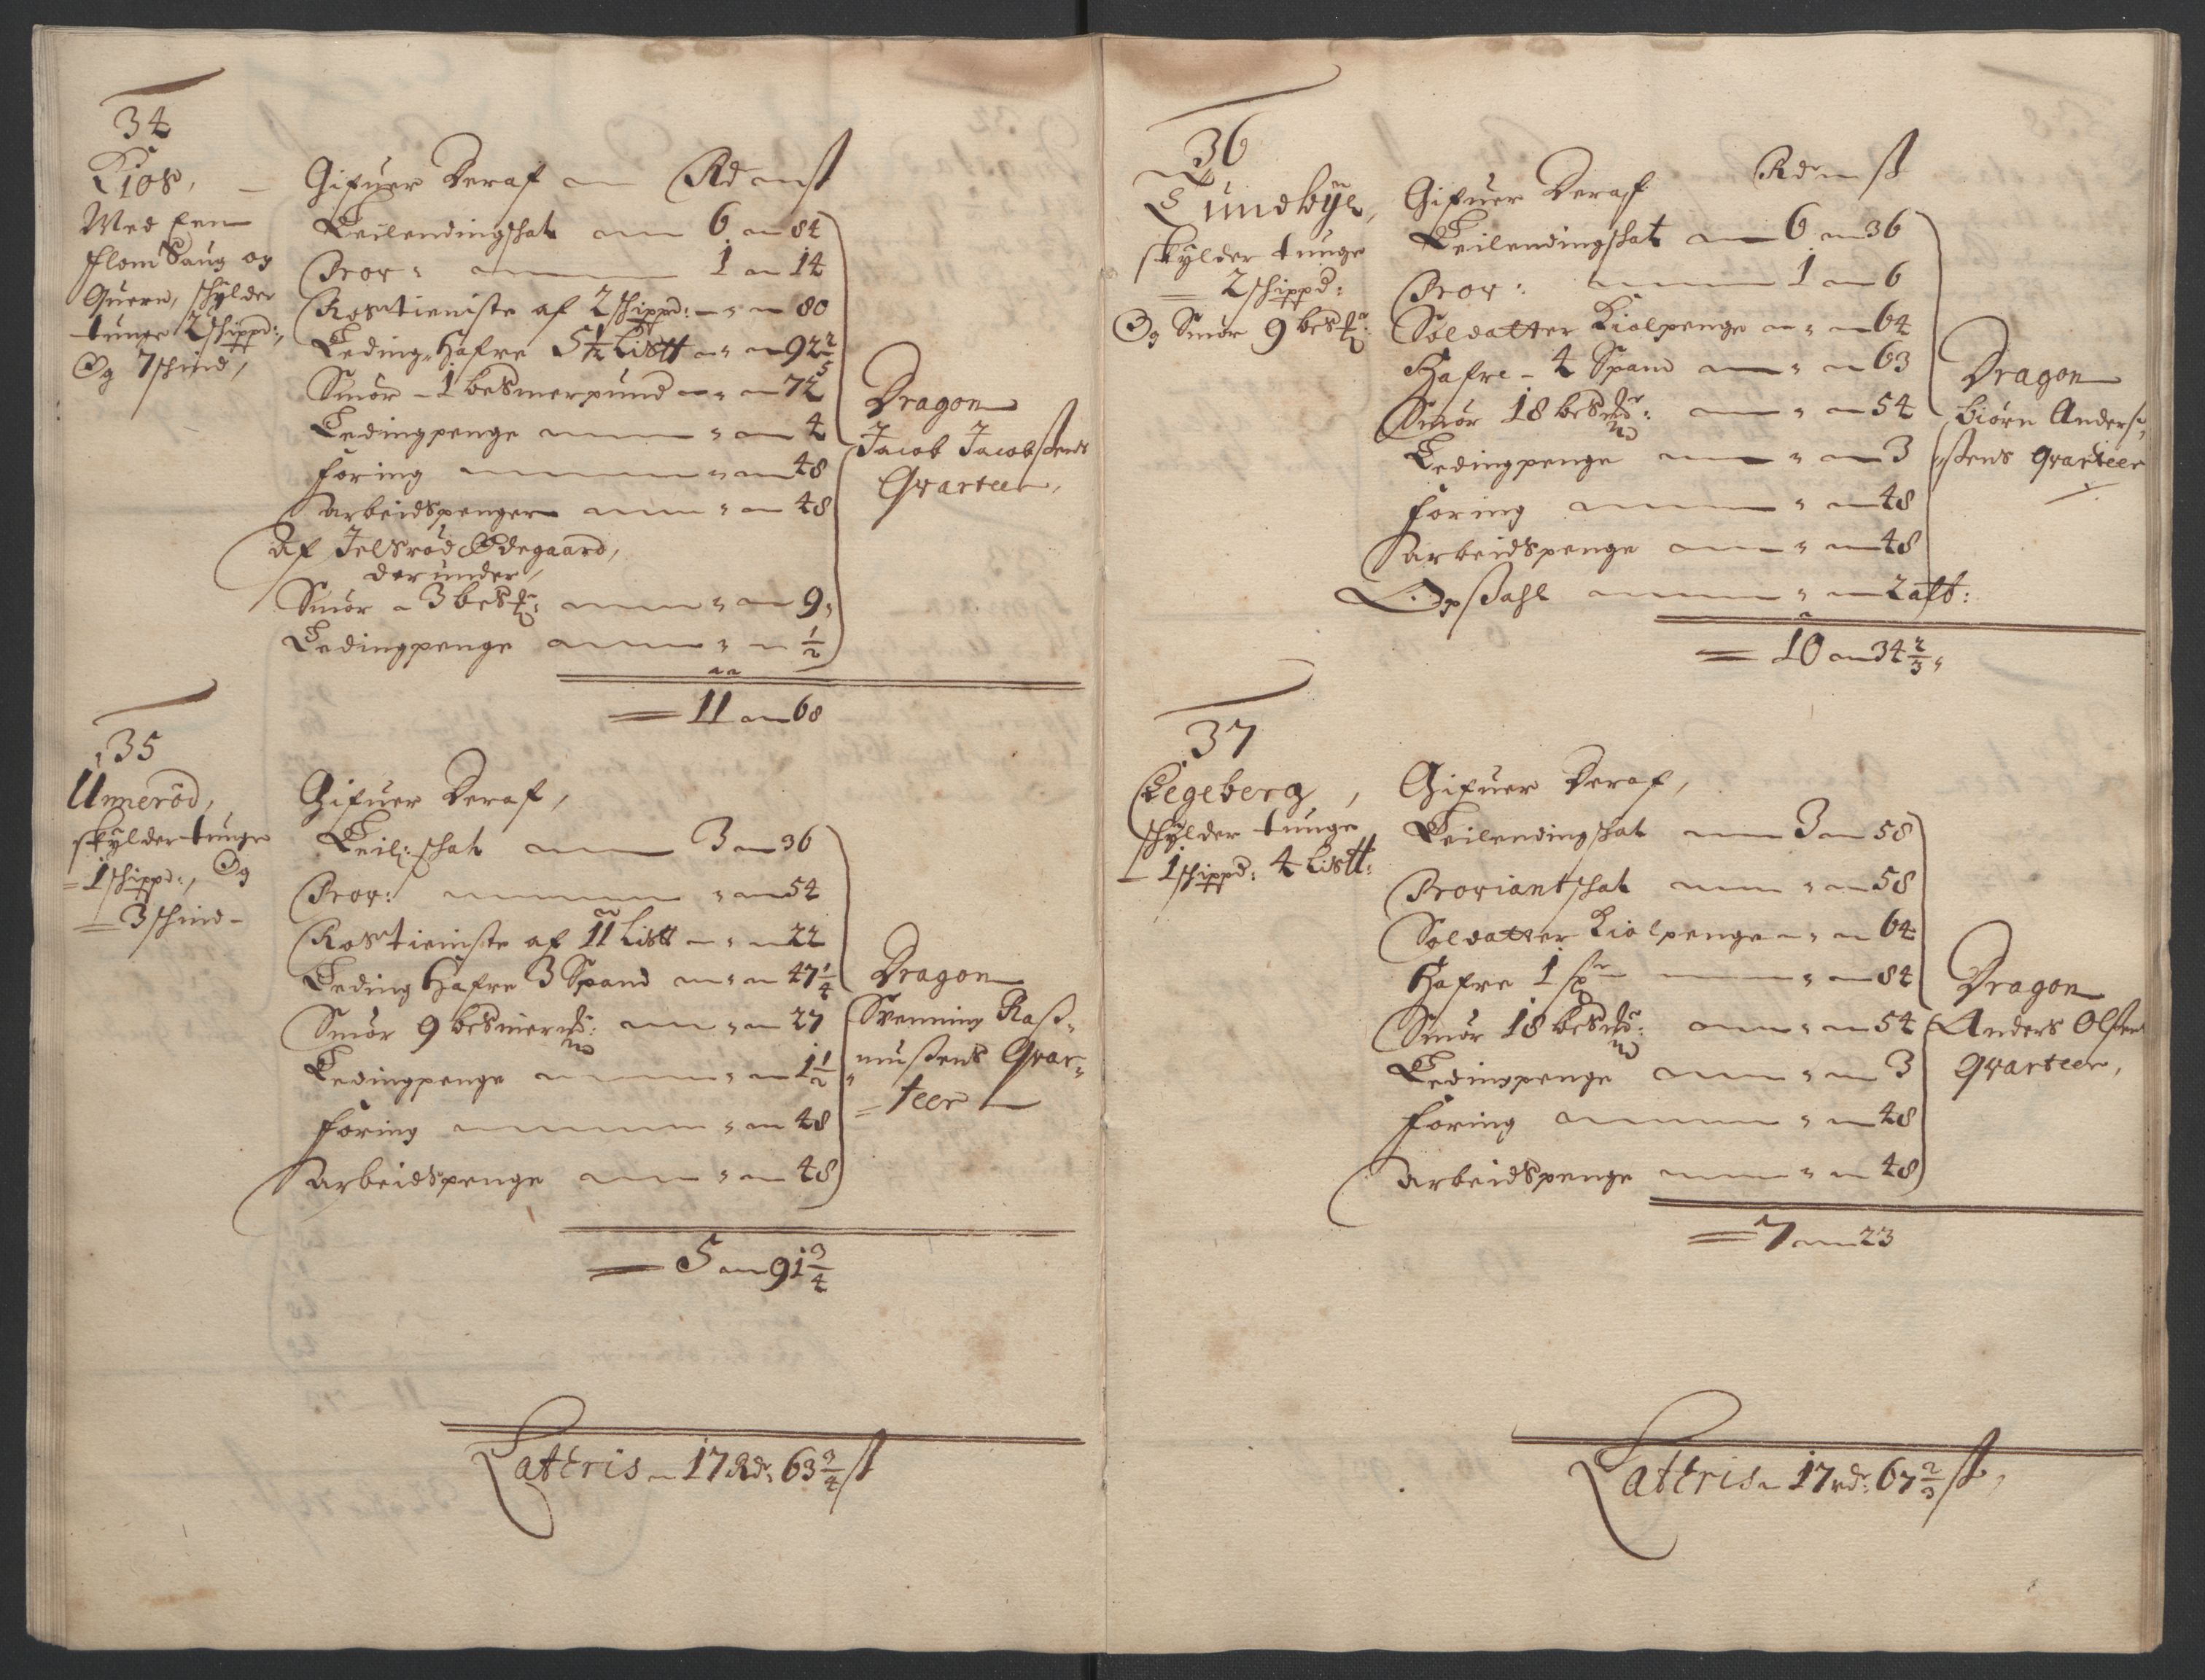 34
Kios,
Med Een
flom Saug og
Quern, schylder
tunge 2 schippd:,
Og 7 schind,
Gifuer Deraf Rd ß
Leilendingschat 6 84
Prov: 1 14
Rostieniste af 2 schippd: " 80
Leding Hafre 5½ Listt " 92 2/5
Smör 1 besmerpund " 72
Ledingpenge " 4
foring " 48
Arbeidspenger " 48
Af Jelsröd Ödegaard,
derunder,
Smör 3 bes℔: " 9,
Ledingpenge " ½
11 68
Dragon
Jacob Jacobsens
Qvarteer,
35
Unneröd,
skylder tunge
1 schippd:, Og
3 schind
Gifuer Deraf,
Leil: schat 3 36
Prov: " 54
Rostieniste af 11 Listt " 22
Leding Hafre 3 Spand " 47¼
Smör 9 besmer℔: " 27
Ledingpenge " 1½
foring " 48
Arbeidspenge " 48
5 91¾
Dragon
Svenning Raß-
mußens Qvar-
teer
Latteris 17 Rd: 63¾ ß
36
Lundbÿe,
skÿlder tunge
2 schippd:
Og Smör 9 bes℔:
Gifuer Deraf Rdr ß
Leilendingschat 6 36
Prov: 1 6
Soldatter Kiolpenge " 64
Hafre 4 Spand " 63
Smör 18 bes℔: " 54
Ledingpenge " 3
foring " 48
Arbeidspenge " 48
Opßahl " 2 alb:
10 34⅔
Dragon
biörn Anders-
ßens qvarteer
37
Legeberg,
schÿlder tunge
1 schippd: 4 Listt:
Gifuer Deraf,
Leilendingschat 3 58
Proviantschat " 58
Soldatter Kiolpenge " 64
Hafre 1 " 84
Smör 18 bes℔: " 54
Ledingpenge " 3
foring " 48
Arbeidspenge " 48
7 23
Dragon
Anders Olsens
qvarteer,
Latteris 17 rdr: 67⅔ ß,